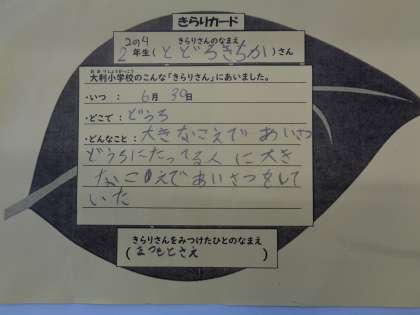 きらりカード
きらりさんのなまえ
2の4
2年生(とどろきちか)さん
大利小学校のこんな「きらりさん」にあいました。
・いつ : 6月 30日
・どこで : どうろ
・どんなこと : 大きなこえで あいさつ
どうろにたってる人 に大き
なこえであいさつをして
いた
きらりさんをみつけたひとのなまえ
(まつもとさえ)